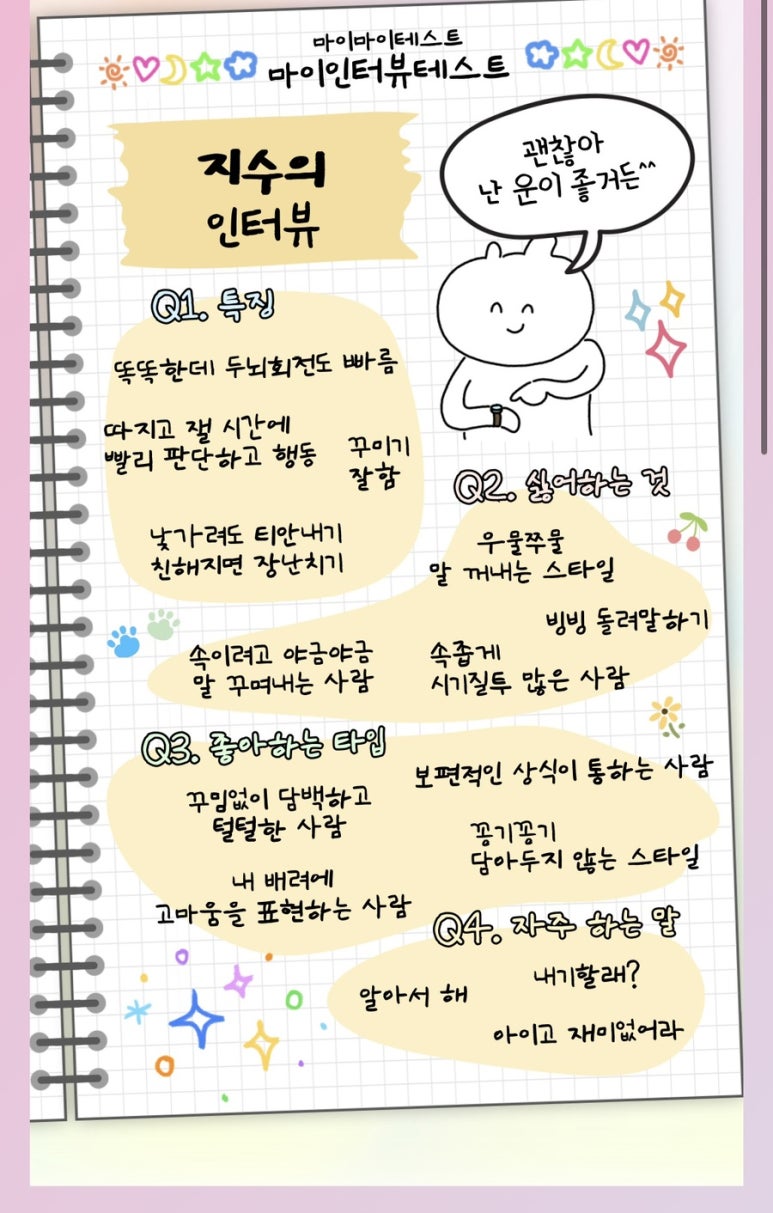 마이마이테스트
마이인터뷰테스트
지수의
인터뷰
괜찮아
난 운이 좋거든^^
Q1. 특징
똑똑한데 두뇌회전도 빠름
따지고 잴 시간에
빨리 판단하고 행동
꾸미기
잘함
낯가려도 티안내기
친해지면 장난치기
Q2. 싫어하는 것
우물쭈물
말 꺼내는 스타일
빙빙 돌려말하기
속이려고 야금야금
말 꾸며내는 사람
속좁게
시기질투 많은 사람
Q3. 좋아하는 타입
보편적인 상식이 통하는 사람
꾸밈없이 담백하고
털털한 사람
꽁기꽁기
담아두지 않는 스타일
내 배려에
고마움을 표현하는 사람
Q4. 자주 하는 말
알아서 해
내기할래?
아이고 재미없어라